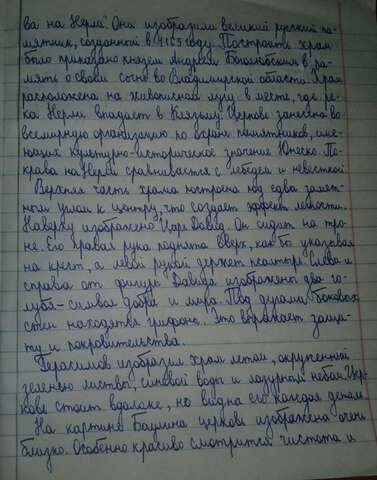 ва на Нерли". Она изобразили великий русский па-
мятник, созданной в 1165 году. Построить храм
было приказано князем Андреем Боголюбским в па-
мять о своём сыне во Владимирской области. Храм
расположена на живописном лугу в месте, где ре-
ка Нерли впадает в Клязьму. Церковь занесено во
всемирную организацию по охране памятников, име-
ющая Культурно-историческое значение Юнеско. По-
крава на Нерли сравнивается с лебедем и невесткой
Верхняя часть храма построена под едва замет-
ным углом к центру, что создает эффект легкости.
Наверху изображено Царь Давид. Он сидит на тро-
не. Его правая рука поднята вверх, как бы указывая
на крест, а левой рукой держит псалтирь. Слева и
справа от фигуры Давида изображены два го-
лубя - символ добра и мира. Под дугами боковых
стен находятся грифоны. Это выражает защи-
ту и покровительства.
Герасимов изобразил храм летом, окруженной
зеленью листвы, синевой воды и лазурным небом. Цер-
ковь стоит вдалеке, но видна его каждая деталь.
На картине Баулина церковь изображена очень
близко. Особенно красиво смотрится чистота и